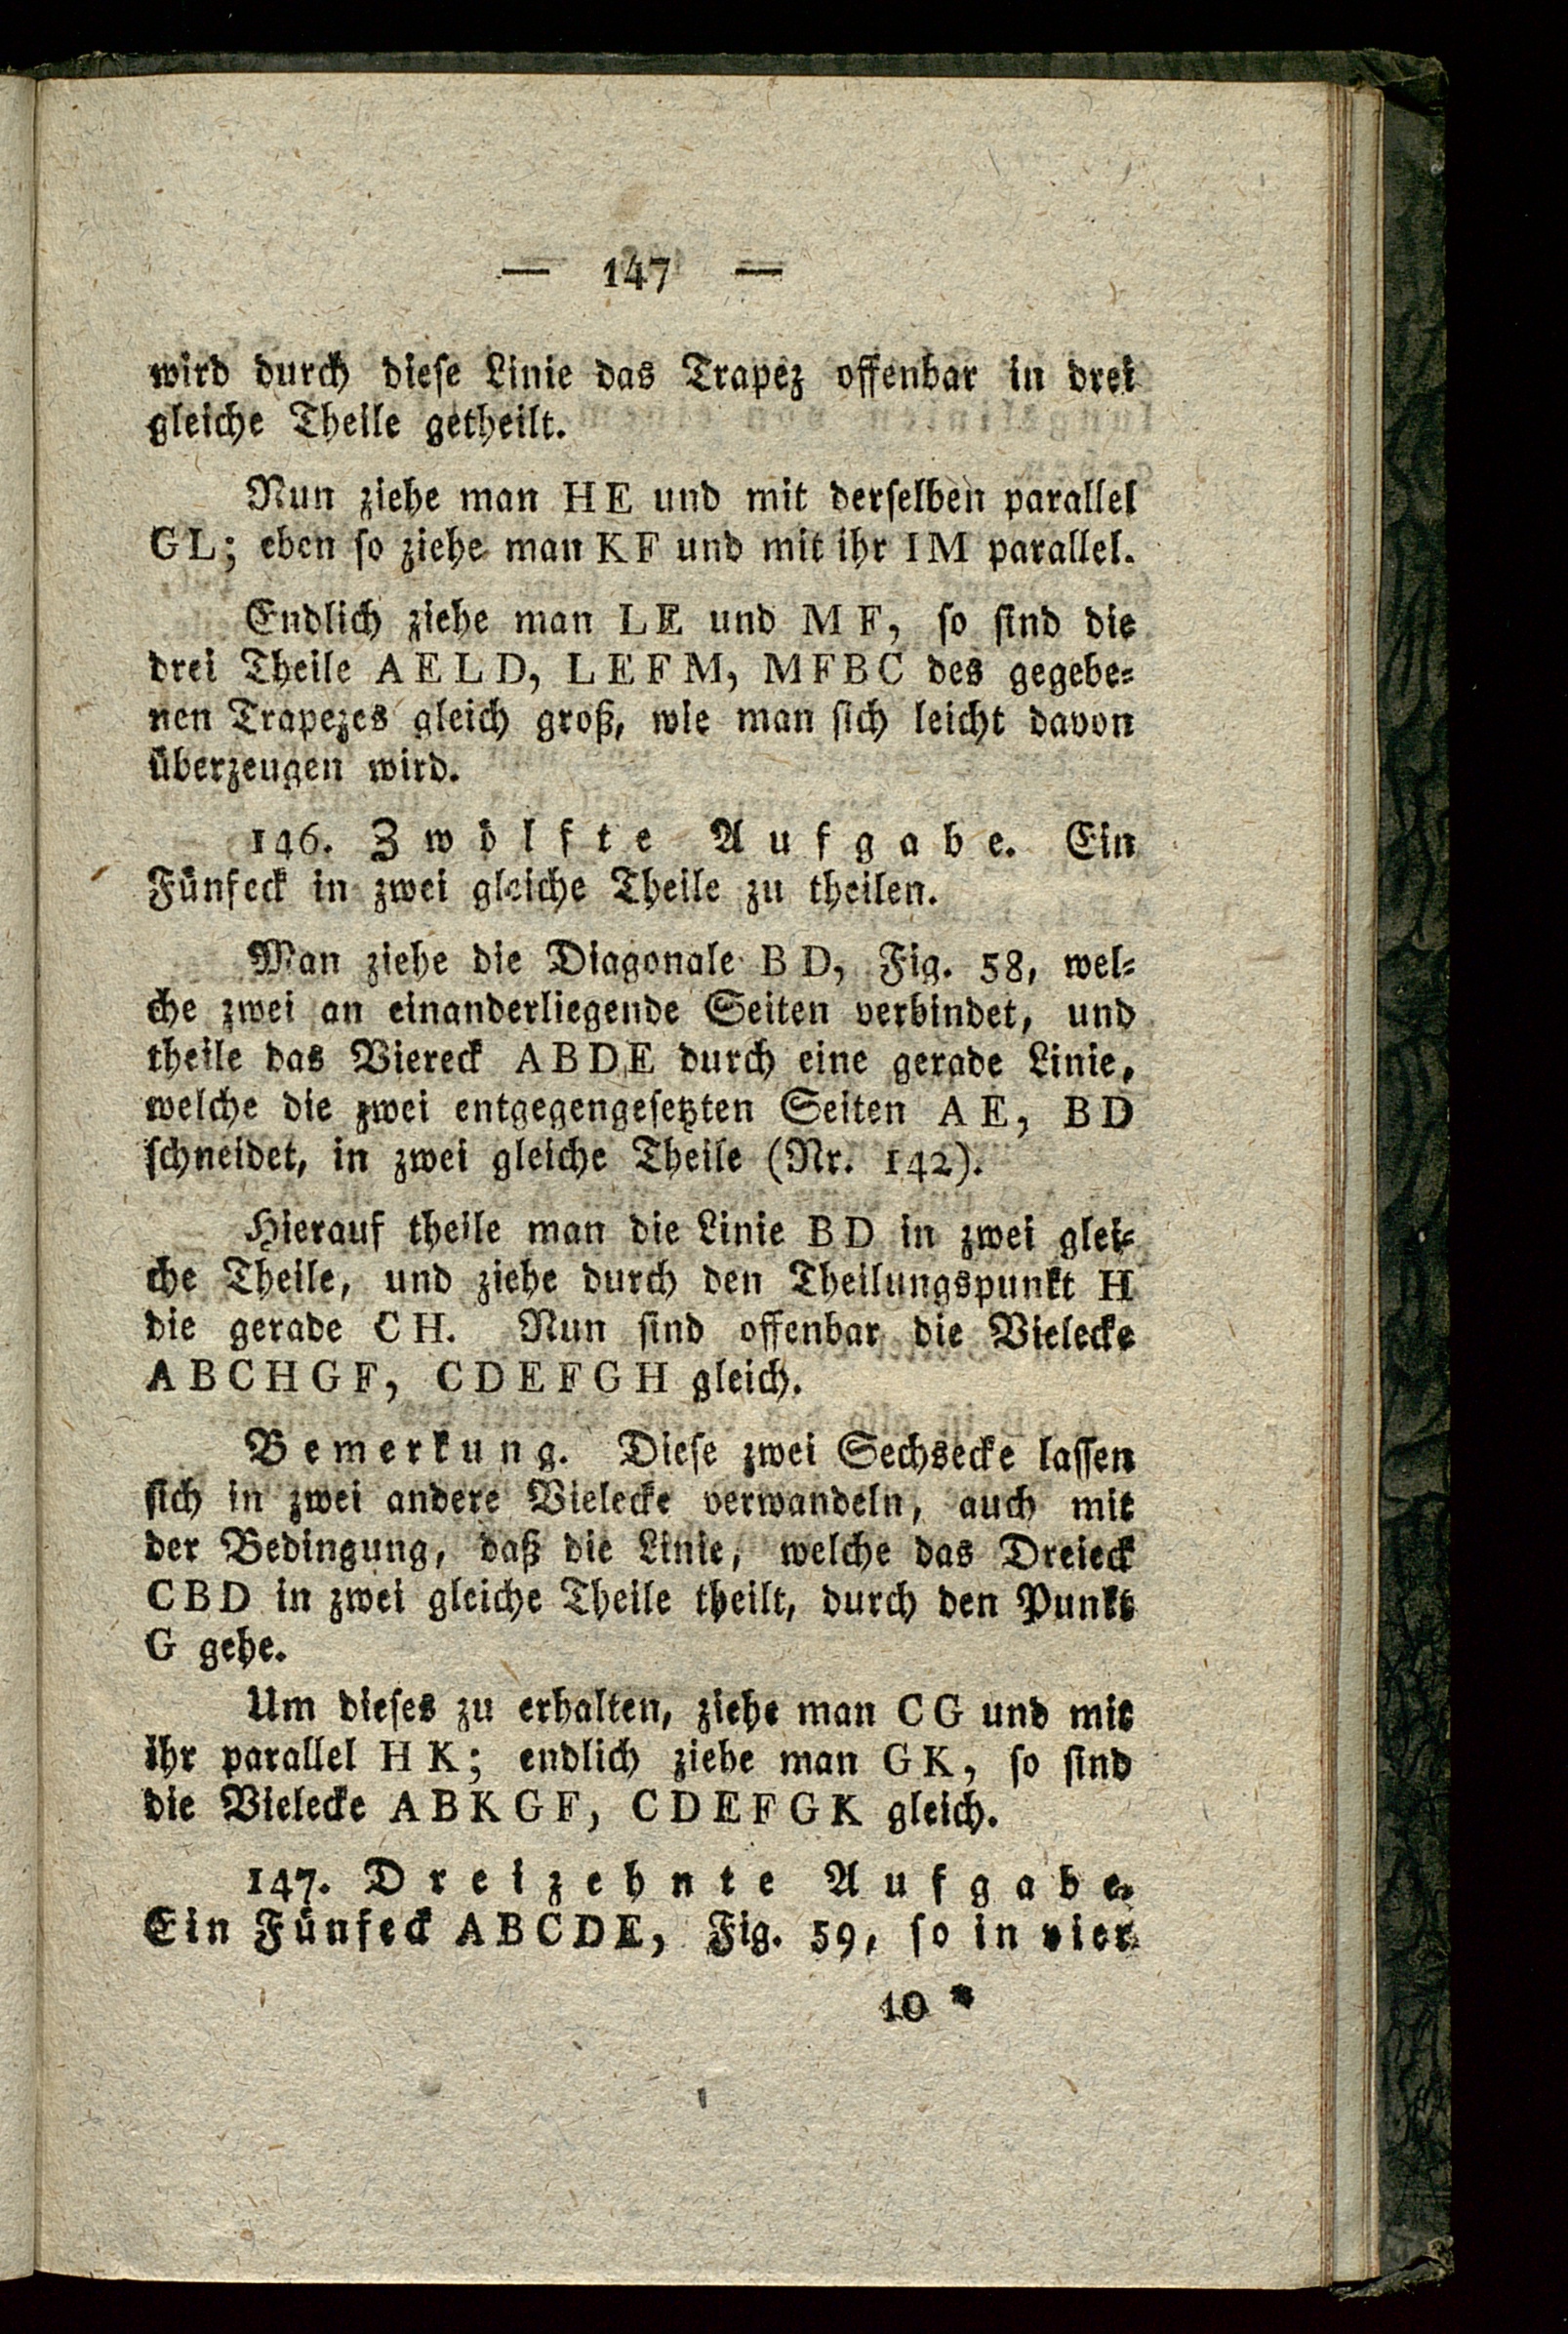 — 147 —
wird durch diese Linie das Trapez offenbar in drei
gleiche Theile getheilt.
Nun ziehe man HE und mit derselben parallel
GL; eben so ziehe man KF und mit ihr IM parallel.
Endlich ziehe man LE und MF, so sind die
drei Theile AELD, LEFM, MFBC des gegebe-
nen Trapezes gleich groß, wie man sich leicht davon
überzeugen wird.
146. Zwölfte Aufgabe. Ein
Fünfeck in zwei gleiche Theile zu theilen.
Man ziehe die Diagonale BD, Fig. 58, wel-
che zwei an einanderliegende Seiten verbindet, und
theile das Viereck ABDE durch eine gerade Linie,
welche die zwei entgegengesetzten Seiten AE, BD
schneidet, in zwei gleiche Theile (Nr. 142).
Hierauf theile man die Linie BD in zwei glei-
che Theile, und ziehe durch den Theilungspunkt H
die gerade CH. Nun sind offenbar die Vielecke
ABCHGF, CDEFGH gleich.
Bemerkung. Diese zwei Sechsecke lassen
sich in zwei andere Vielecke verwandeln, auch mit
der Bedingung, daß die Linie, welche das Dreieck
CBD in zwei gleiche Theile theilt, durch den Punkt
G gehe.
Um dieses zu erhalten, ziehe man CG und mit
ihr parallel HK; endlich ziehe man GK, so sind
die Vielecke ABKGF, CDEFGK gleich.
147. Dreizehnte Aufgabe.
Ein Fünfeck ABCDE, Fig. 59, so in vier
10 *